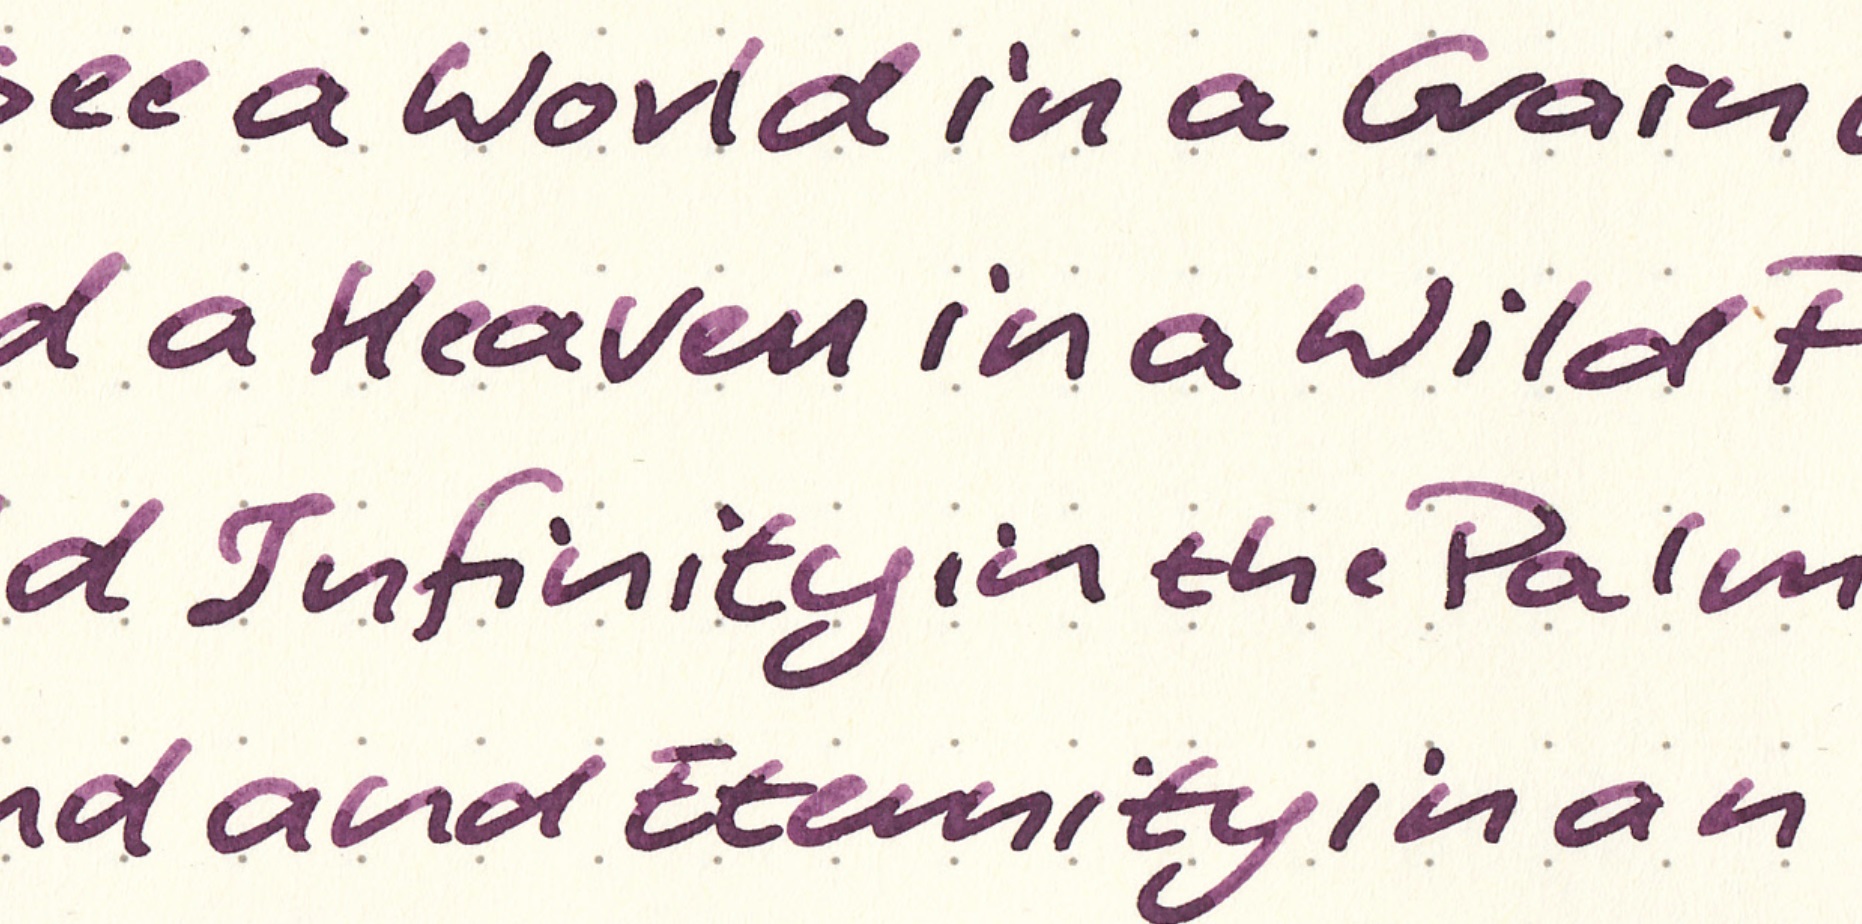 see a World in a Grain
d a Heaven in a Wild F
d Infinity in the Palm
nd and Eternity in an